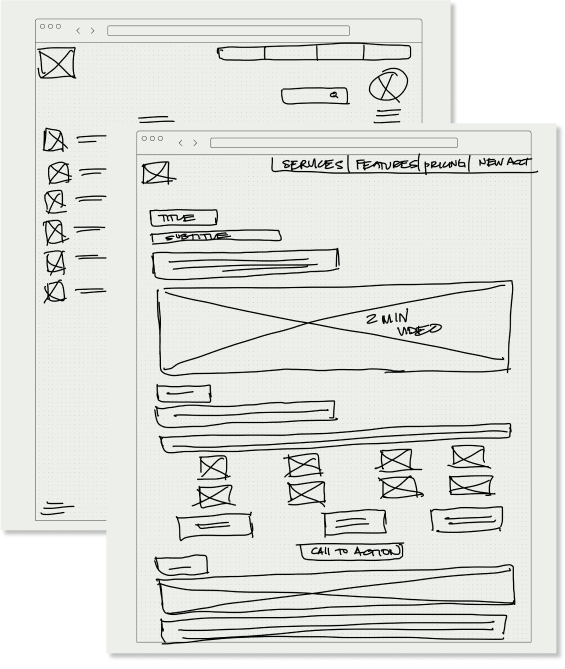 SERVICES FEATURES PRICING NEW ACCT
TITLE
SUBTITLE
2 MIN
VIDEO
CALL TO ACTION